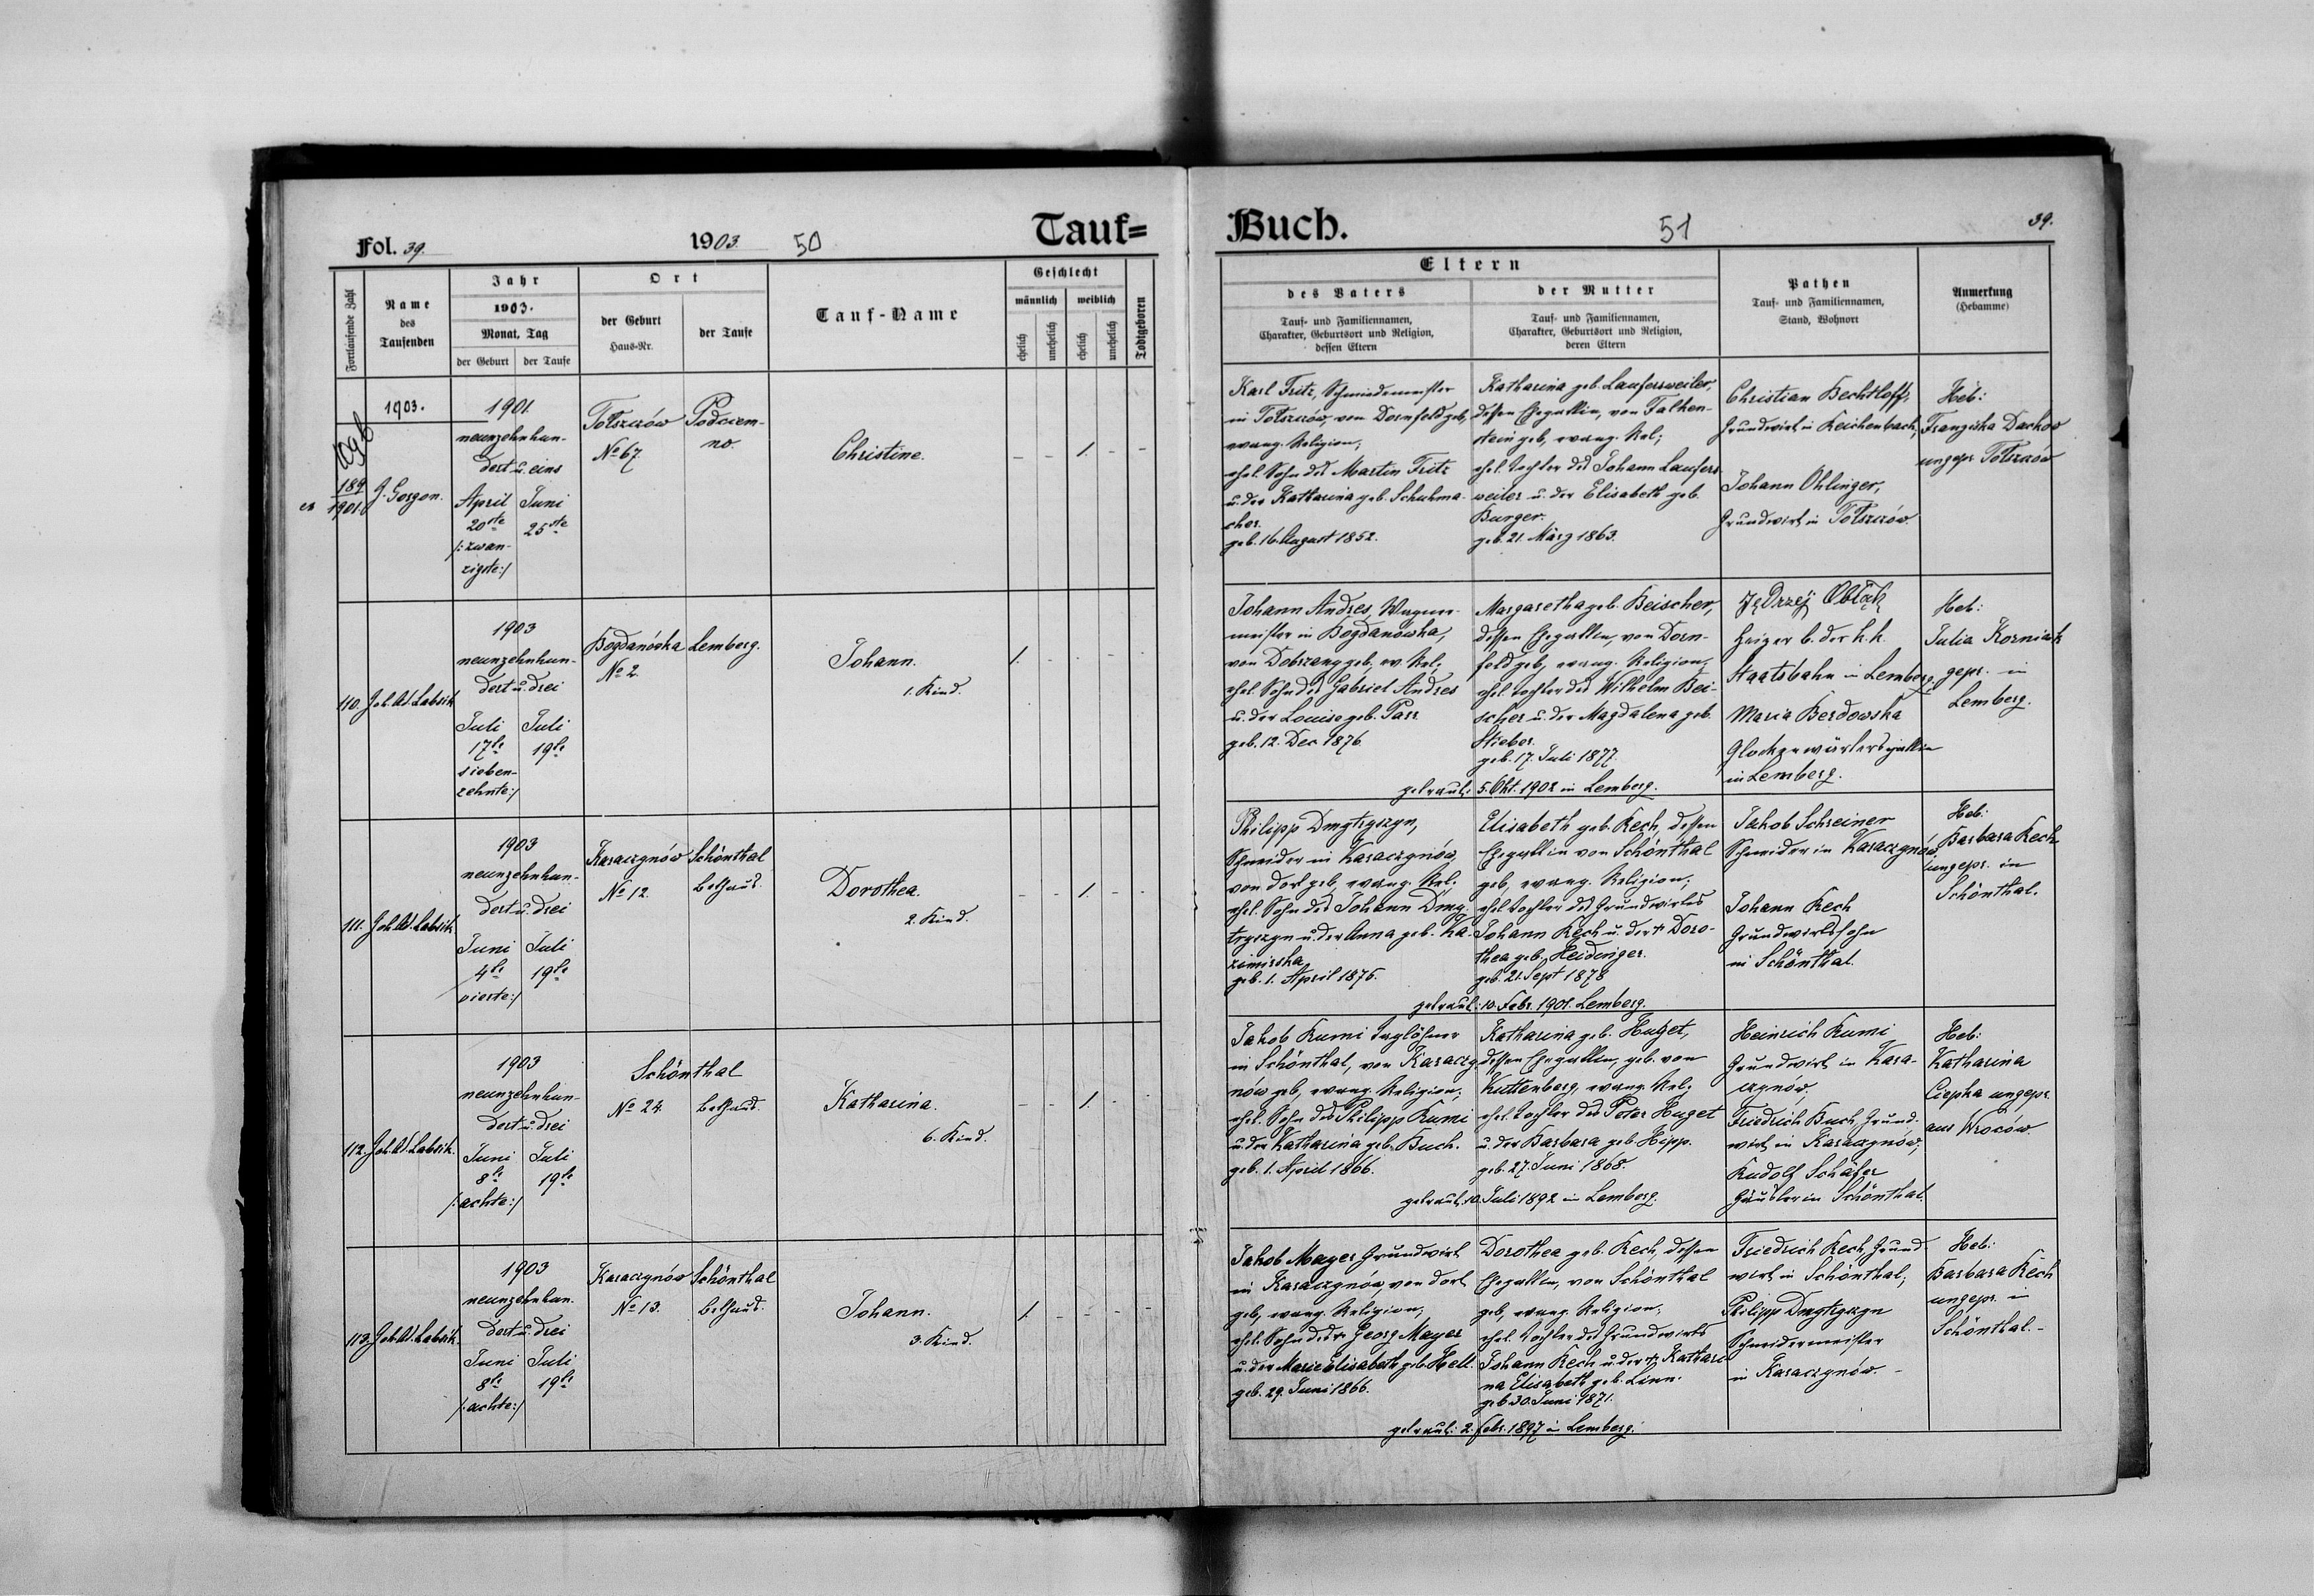 Fol. 39.
1903.
50
Tauf=
Fortlaufende Zahl
Name
des
Taufenden
Jahr
1903.
Monat, Tag
der Geburt
der Taufe
Ort
der Geburt
Haus-Nr.
der Taufe
Tauf-Name
Geschlecht
männlich
weiblich
ehelich
unehelich
ehelich
unehelich
Todtgeboren
1903.
109 b
189
ex 1901.
J. Gorgon.
1901.
neunzehnhun-
dert u. eins
April
20ste
/:zwan-
zigste:/
Juni
25ste
Tołszczów
No 67.
Podciem-
no.
Christine.
1.
110.
Joh. Ad. Labsik
1903
neunzehnhun-
dert u. drei
Juli
17te
sieben-
zehnte:/
Juli
19te
Bogdanówka
No 2.
Lemberg.
Johann.
1. Kind.
1.
111.
Joh. Ad. Labsik
1903
neunzehnhun-
dert u. drei
Juni
4te
vierte:/
Juli
19te
Karaczynów
No 12.
Schönthal
Bethaus.
Dorothea.
2. Kind.
1.
112.
Joh. Ad. Labsik.
1903
neunzehnhun-
dert u. drei
Juni
8te
/:achte:/
Juli
19te
Schönthal
No 24.
Bethaus.
Katharina.
6. Kind.
1.
113.
Joh. Ad. Labsik.
1903
neunzehnhun.
dert u. drei
Juni
8te
/:achte:/
Juli
19te
Karaczynów
No 13.
Schönthal
Bethaus.
Johann.
3. Kind.
1.
Buch.
51
39.
Eltern
des Vaters
Tauf- und Familiennamen,
Charakter, Geburtsort und Religion,
dessen Eltern
der Mutter
Tauf- und Familiennamen,
Charakter, Geburtsort und Religion,
deren Eltern
Pathen
Tauf- und Familiennamen,
Stand, Wohnort
Anmerkung
(Hebamme)
Karl Fritz, Schmiedemeister
in Tołszczów, von Dornfeld geb,
evang. Religion,
ehel. Sohn des Martin Fritz
u. der Katharina geb. Schuhma-
cher.
geb. 16. August 1852.
Katharina geb. Laufersweiler,
dessen Ehegattin, von Falken-
stein geb, evang. Rel;
ehel. Tochter des Johann Laufers-
weiler u. der Elisabeth geb.
Burger.
geb. 21. März 1863.
Christian Bechtloff,
Grundwirt in Reichenbach,
Johann Ohlinger,
Grundwirt in Tołszczów.
Heb:
Franziska Dachów
ungepr. Tołszczów
Johann Andres, Wagner-
meister in Bogdanówka,
von Dobrzany geb, ev. Rel.
ehel. Sohn des Gabriel Andres
u. der Louise geb. Parr.
geb. 12. Dec 1876.
Margaretha geb. Beischer,
dessen Ehegattin, von Dorn-
feld geb, evang. Religion,
ehel. Tochter des Wilhelm Bei-
scher u. der Magdalena geb.
Stieber.
geb. 17. Juli 1877.
getraut: 5. Okt. 1902 in Lemberg.
Jędrzej Obłąk
Heizer b. der k. k.
Staatsbahn in Lemberg.
Maria Berdowska
in Lemberg.
Heb:
Julia Korniak
gepr. in
Lemberg.
Philipp Dmytryszyn,
Schneider in Karaczynów,
von dort geb, evang. Rel.
ehel. Sohn des Johann Dmy-
tryszyn u. der Anna geb. Ka-
zimirska,
geb. 1. April 1876.
Elisabeth geb. Kech, dessen
Ehegattin von Schönthal
geb, evang. Religion;
ehel. Tochter des Grundwirtes
Johann Kech u. der + Doro-
thea geb. Heidinger.
geb. 21. Sept 1878
getraut: 10. Febr. 1901. Lemberg.
Jakob Schreiner
Schneider in Karaczynów,
Johann Kech
Grundwirtssohn
in Schönthal.
Heb:
Barbara Kech
ungepr. in
Schönthal.
Jakob Kumi Taglöhner
in Schönthal, von Karaczy-
nów geb, evang. Religion;
ehel. Sohn des Philipp Kumi
u. der Katharina geb. Buch.
geb. 1. April 1866.
Katharina geb. Huget,
dessen Ehegattin, geb. von
Kuttenberg, evang. Rel;
ehel. Tochter des Peter Huget
u. der Barbara geb. Hipp.
geb. 27. Juni 1868.
getraut: 10. Juli 1892 in Lemberg.
Heinrich Kumi
Grundwirt in Kara-
czynów,
Friedrich Buch, Grund-
wirt in Karaczynów,
Rudolf Schäfer
Häusler in Schönthal.
Heb:
Katharina
Ciepka ungepr.
aus Wroców.
Jakob Mayer Grundwirt
in Karaczynów, von dort
geb, evang. Religion,
ehel. Sohn des + Georg Mayer
u. der Marie Elisabeth geb. Hell.
geb. 29. Juni 1866.
Dorothea geb. Kech, dessen
Ehegattin, von Schönthal
geb, evang. Religion,
ehel. Tochter des Grundwirts
Johann Kech u. der + Kathari-
na Elisabeth geb. Linn.
geb. 30. Juni 1871.
getraut: 2. Febr. 1897 in Lemberg.
Friedrich Kech, Grund-
wirt in Schönthal;
Philipp Dmytryszyn
Schneidermeister
in Karaczynów. -
Heb:
Barbara Kech
ungepr. in
Schönthal. -